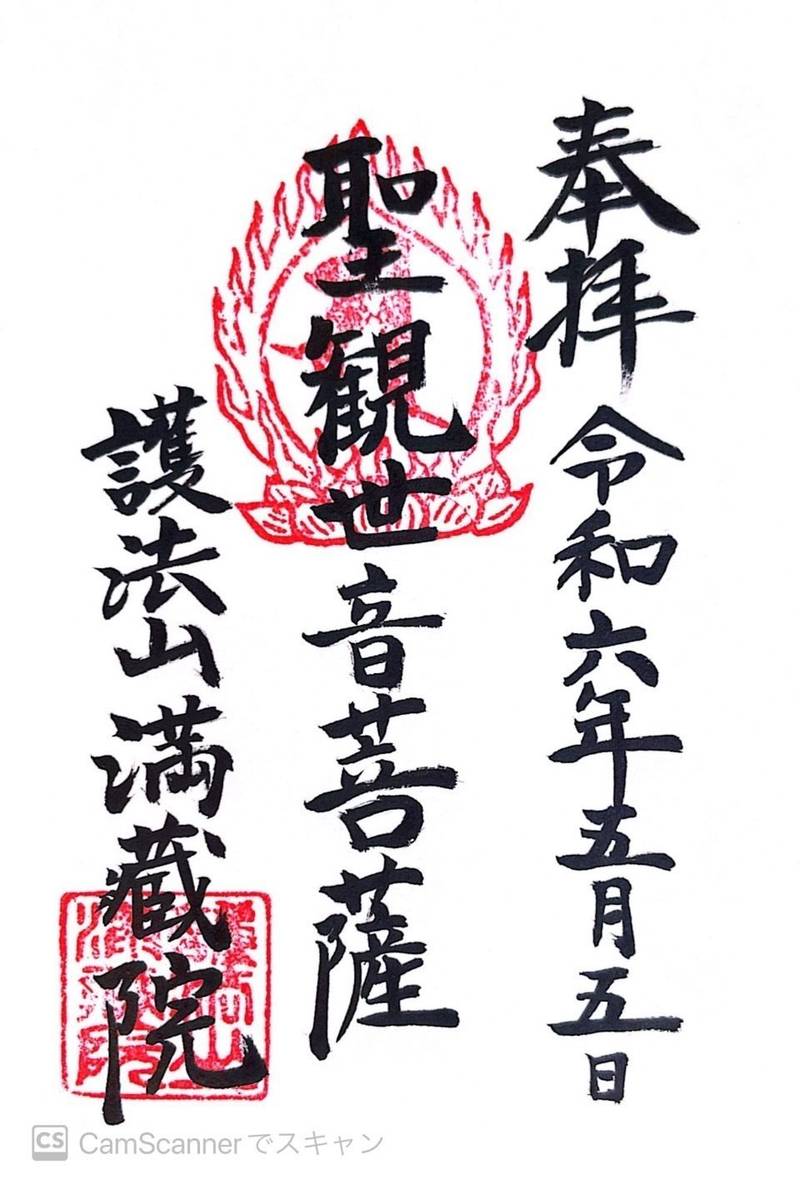 奉拝 令和六年五月五日
聖観世音菩薩
護法山満蔵院
CS CamScannerでスキャン